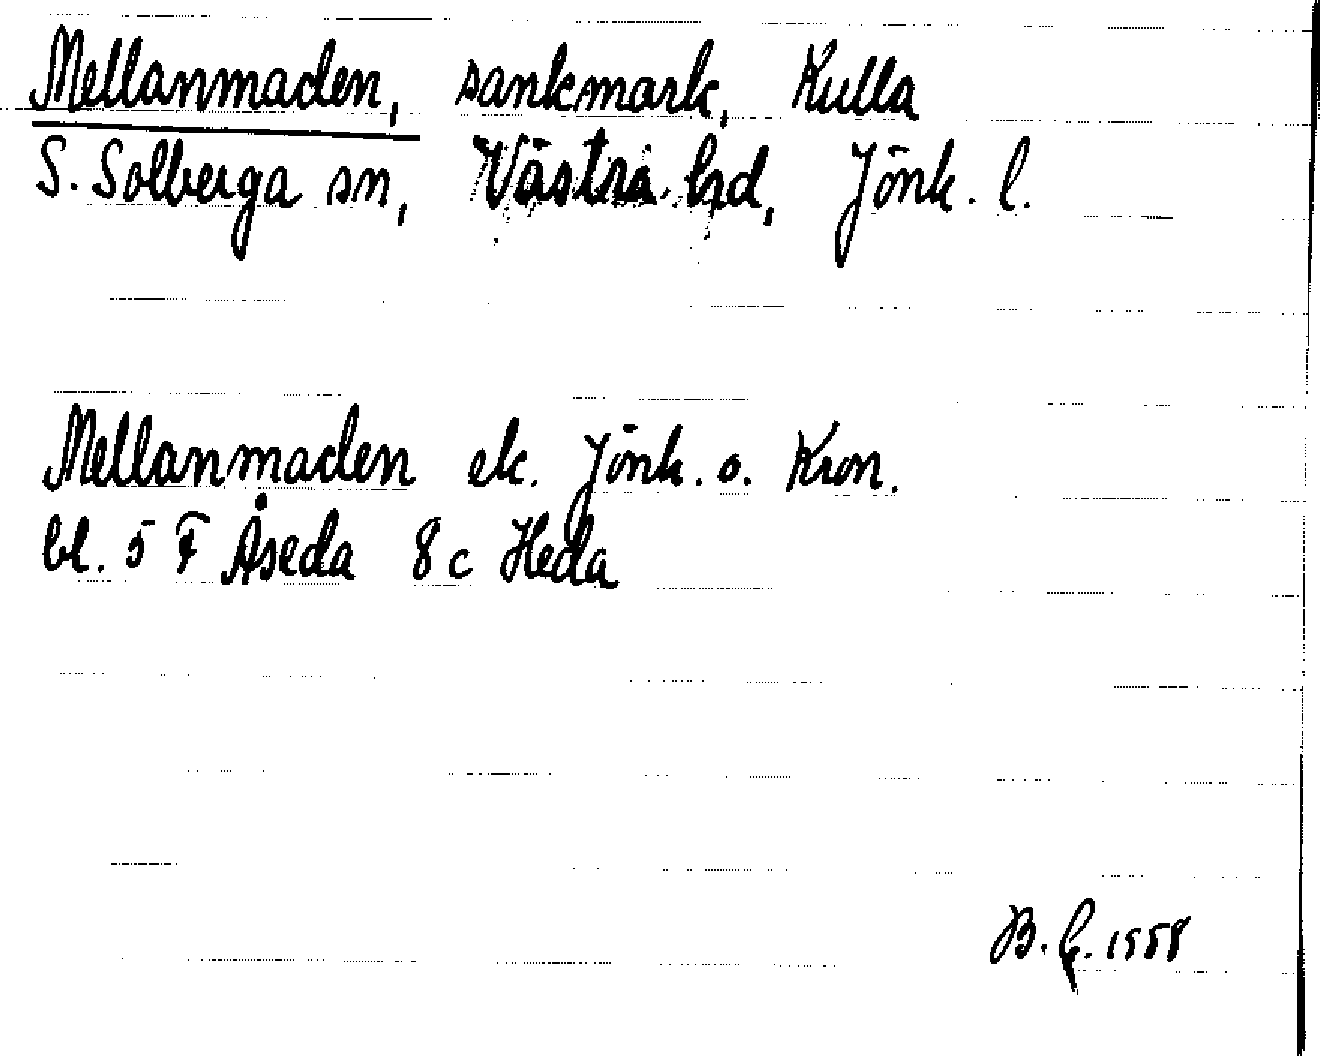 Mellanmaden, sankmark, Kulla
S. Solberga sn, Västra hrd, Jönk. l.
Mellanmaden ek. Jönk. o. Kron.
bl. 5 F Åseda 8 c Heda
B. G. 1958